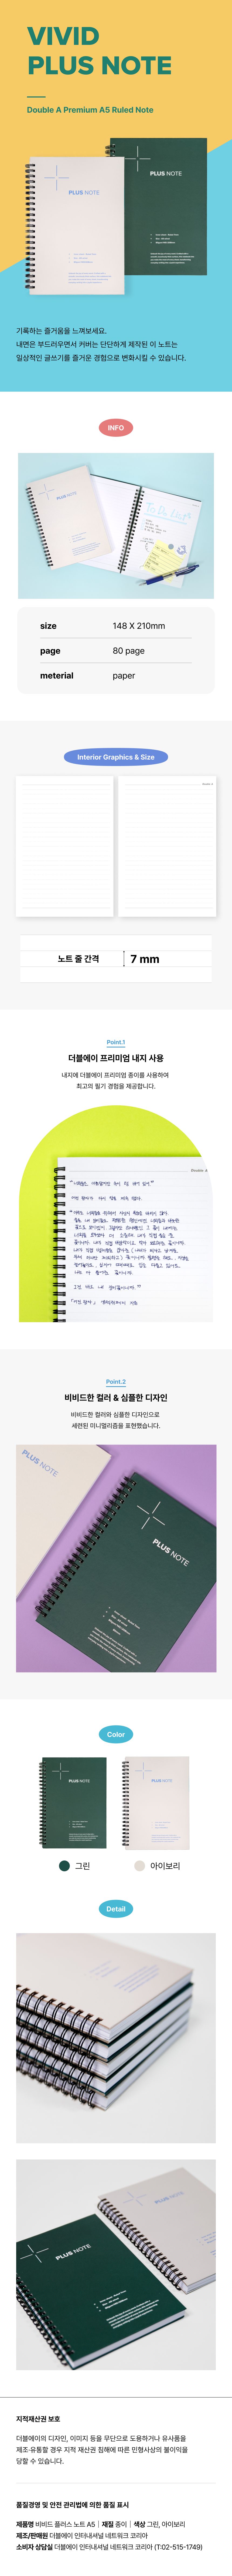 VIVID
PLUS NOTE
Double A Premium A5 Ruled Note
PLUS NOTE
PLUS NOTE
기록하는 즐거움을 느껴보세요.
내면은 부드러우면서 커버는 단단하게 제작된 이 노트는
일상적인 글쓰기를 즐거운 경험으로 변화시킬 수 있습니다.
INFO
PLUS NOTE
To Do List
size 148 X 210mm
page 80 page
meterial paper
Interior Graphics & Size
노트 줄 간격 7 mm
Point.1
더블에이 프리미엄 내지 사용
내지에 더블에이 프리미엄 종이를 사용하여
최고의 필기 경험을 제공합니다.
Double A
Point.2
비비드한 컬러 & 심플한 디자인
비비드한 컬러와 심플한 디자인으로
세련된 미니멀리즘을 표현했습니다.
PLUS NOTE
PLUS NOTE
Color
PLUS NOTE
PLUS NOTE
그린
아이보리
Detail
PLUS NOTE
PLUS NOTE
지적재산권 보호
더블에이의 디자인, 이미지 등을 무단으로 도용하거나 유사품을
제조·유통할 경우 지적 재산권 침해에 따른 민형사상의 불이익을
당할 수 있습니다.
품질경영 및 안전 관리법에 의한 품질 표시
제품명 비비드 플러스 노트 A5 | 재질 종이 | 색상 그린, 아이보리
제조/판매원 더블에이 인터내셔널 네트워크 코리아
소비자 상담실 더블에이 인터내셔널 네트워크 코리아 (T:02-515-1749)